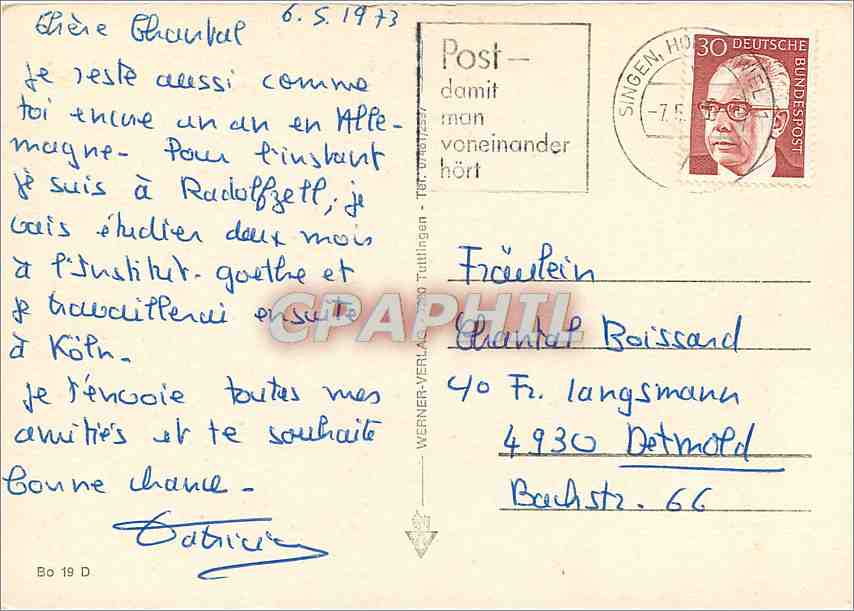 6.5.1973
Chère Chantal
je reste aussi comme
toi encore un an en Alle-
magne. Pour l'instant
je suis à Radolfzell, je
vais étudier deux mois
à l'institut goethe et
je travaillerai ensuite
à Köln.
Je t'envoie toutes mes
amitiés et te souhaite
bonne chance.
Patricia
Bo 19 D
WERNER-VERLAG Tuttlingen - Tel. 07461/2597
Post -
damit
man
voneinander
hört
SINGEN, HO
-7.5.
30 DEUTSCHE
BUNDESPOST
Fräulein
Chantal Boissard
c/o Fr. Langsmann
4930 Detmold
Bachstr. 66
CPAPHIL